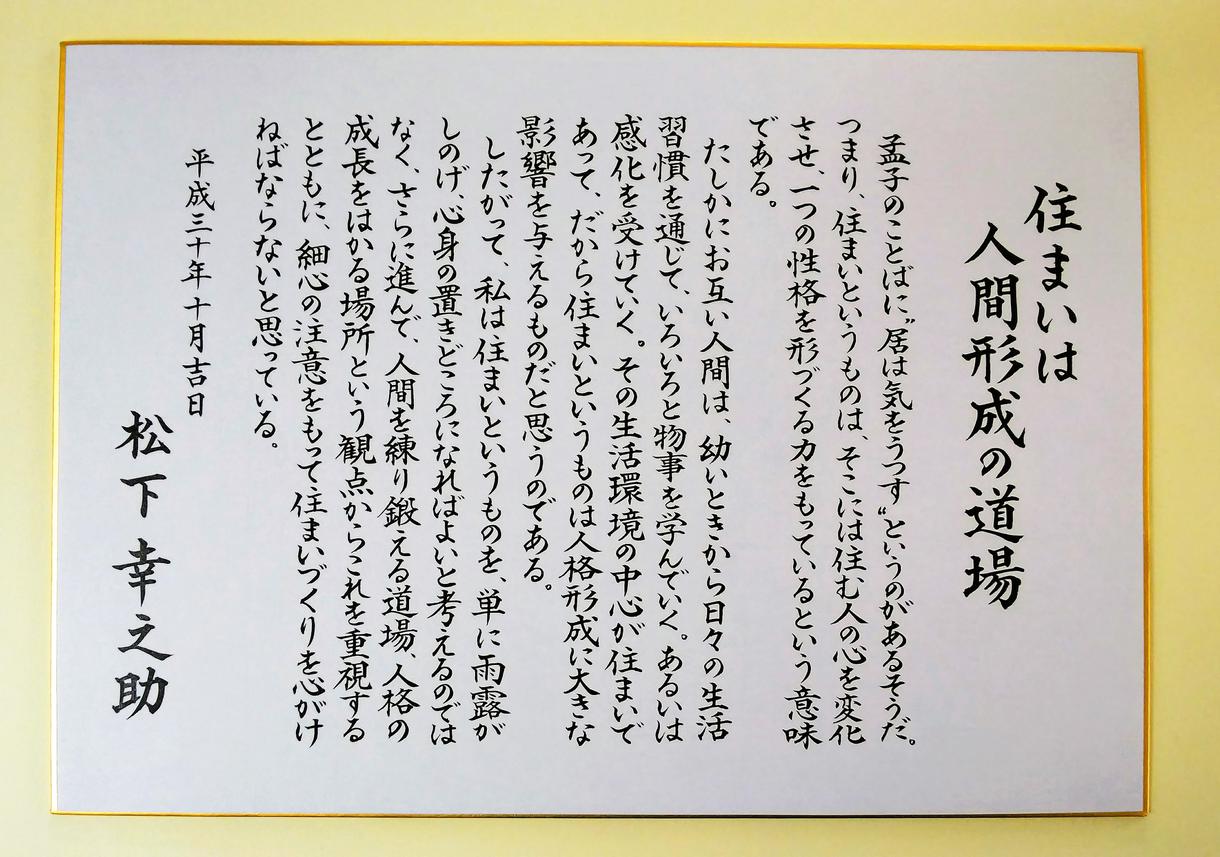 住まいは
人間形成の道場
孟子のことばに〝居は気をうつす〟というのがあるそうだ。
つまり、住まいというものは、そこには住む人の心を変化
させ、一つの性格を形づくる力をもっているという意味
である。
たしかにお互い人間は、幼いときから日々の生活
習慣を通じて、いろいろと物事を学んでいく。あるいは
感化を受けていく。その生活環境の中心が住まいで
あって、だから住まいというものは人格形成に大きな
影響を与えるものだと思うのである。
したがって、私は住まいというものを、単に雨露が
しのげ、心身の置きどころになればよいと考えるのでは
なく、さらに進んで、人間を練り鍛える道場、人格の
成長をはかる場所という観点からこれを重視する
とともに、細心の注意をもって住まいづくりを心がけ
ねばならないと思っている。
平成三十年十月吉日
松下幸之助